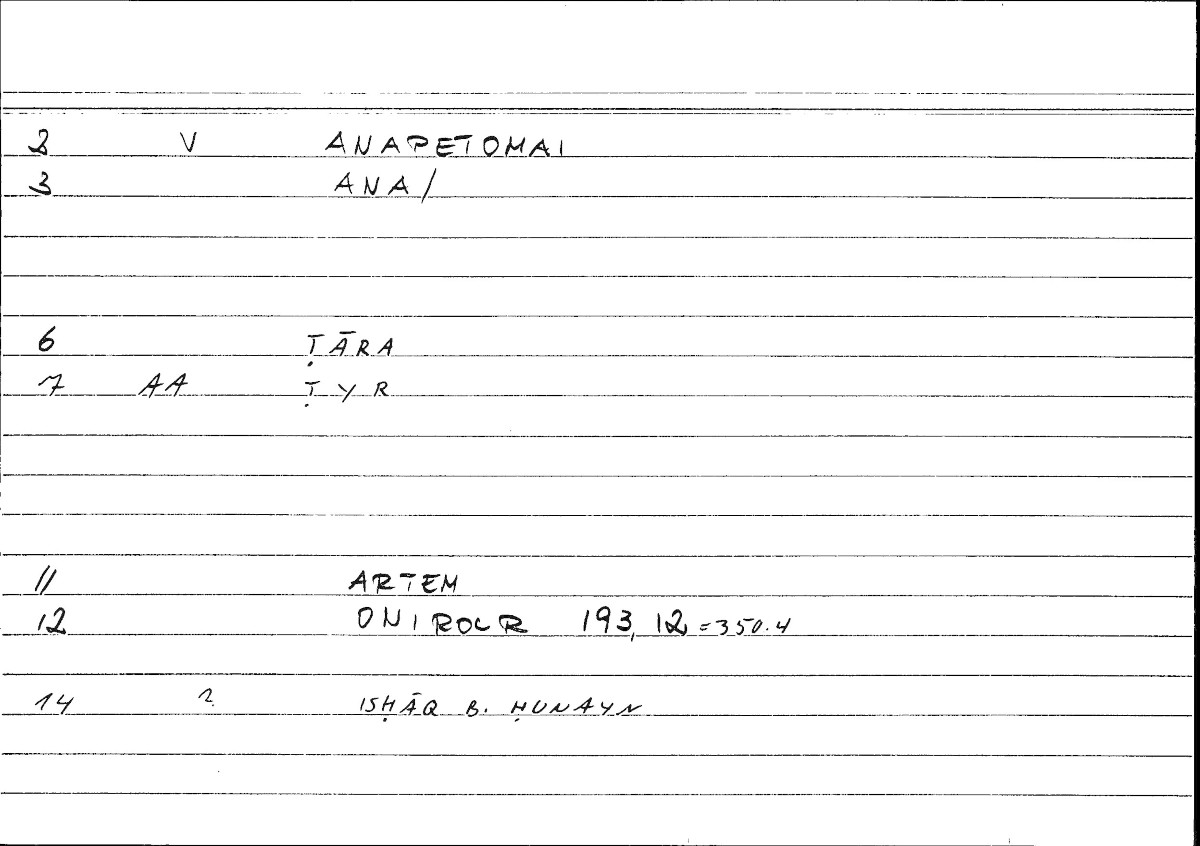 2 V ANAPETOMAI
3 ANA/
6 ṬĀRA
7 AA ṬYR
11 ARTEM
12 ONIROCR 193,12 = 350.4
14 ? ISḤĀQ B. ḤUNAYN